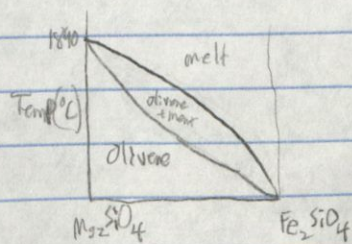 1890
melt
Temp(°C)
olivine
+ melt
olivene
Mg2SiO4
Fe2SiO4